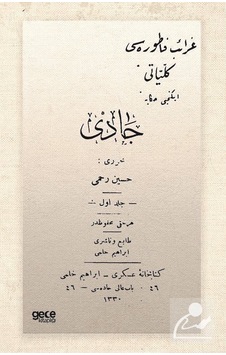 غرائب فاطورەسی
كلیاتی
ایكنجی حكایە
جادی
محرری :
حسین رحمی
— جلد اول —
هر حقی محفوظدر
طابع و ناشری
ابراهیم حلمی
كتابخانۀ عسكری — ابراهیم حلمی
٤٦ — باب عالی جادەسی — ٤٦
١٣٣٠
gece
kitaplığı